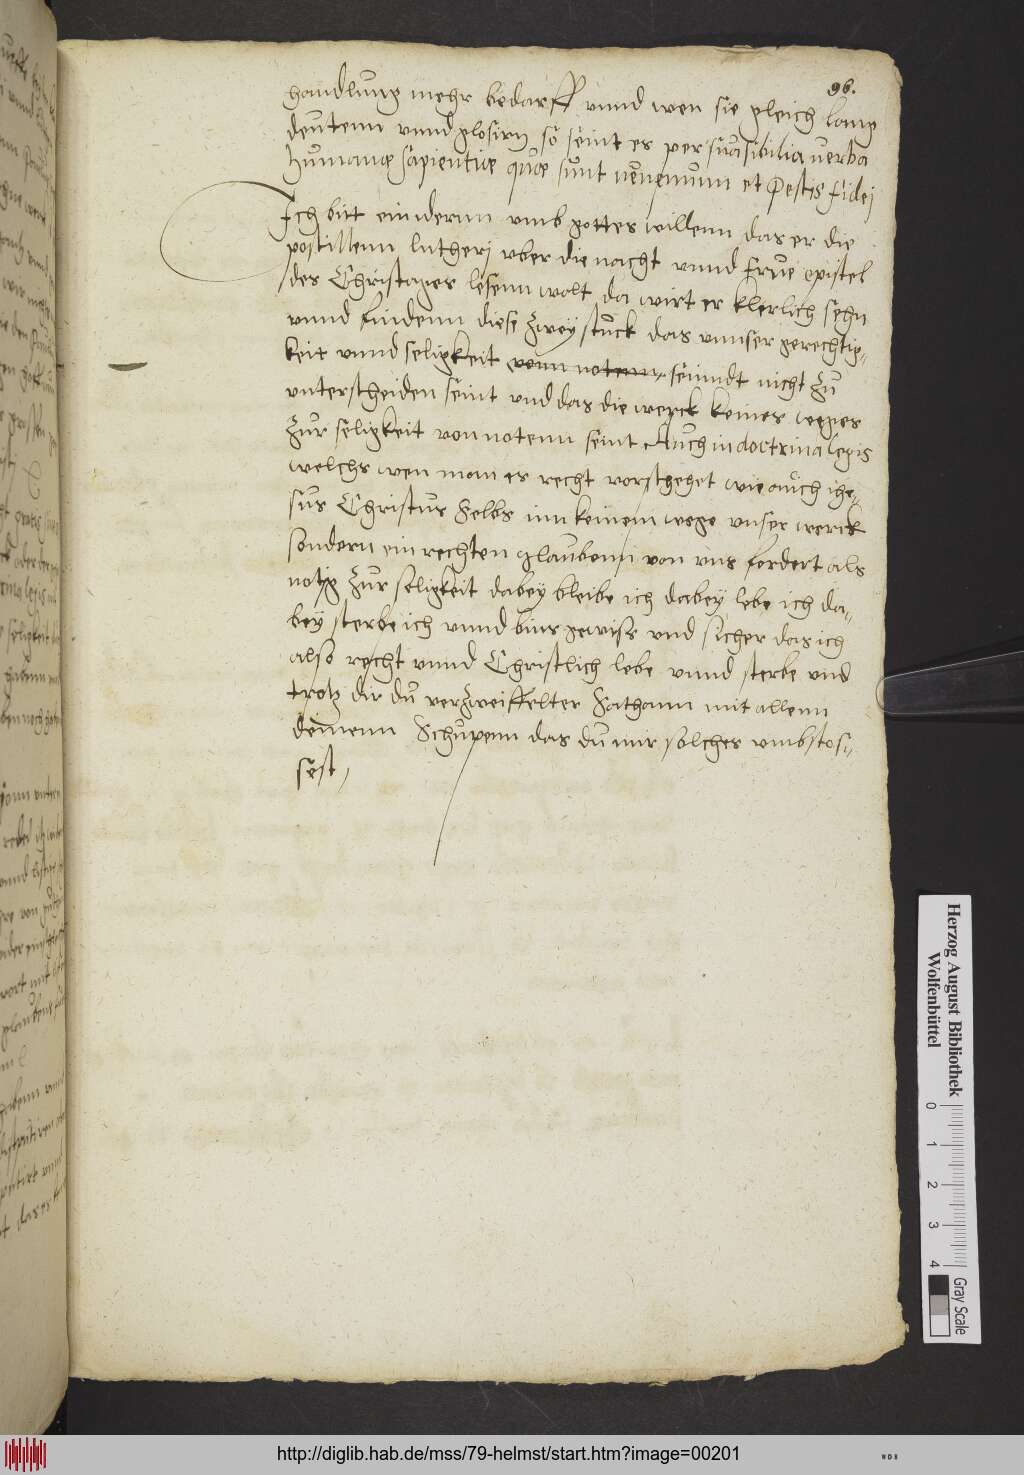 96.
handlung mehr bedarff vnnd wen sie gleich lang
deutenn vnnd glosirn so seint es persuasibilia verba
humanae sapientiae quae sunt venenum et Pestis fidej
Ich bitt einidernn vmb gottes willenn das er die
postillenn lutherj vber die nacht vnnd Frue epistel
des Christages lesenn wolt da wirt er klerlich sehn
vnnd findenn diese zwey stuck das vnnser gerechtig-
keit vnnd seligkeit vonn notenn seinndt nicht zu
vnterscheiden seint vnd das die werck keines weges
zur seligkeit von notenn seint Auch in doctrina legis
welchs wen man es recht vorstehet wie auch ihe-
sus Christus selbs inn keinem wege vnser werck
sondern ein rechten glaubenn von vns fordert als
notig zur seligkeit dabey bleibe ich dabey lebe ich da-
bey sterbe ich vnnd bins gewiss vnd sicher das ich
also recht vnnd Christlich lebe vnnd sterbe vnd
trotz dir du verzweiffelter Sathann mit allenn
deinenn Schupenn das du mir solches vmbstos-
sest
Herzog August Bibliothek
Wolfenbüttel
0 1 2 3 4
Gray Scale
http://diglib.hab.de/mss/79-helmst/start.htm?image=00201